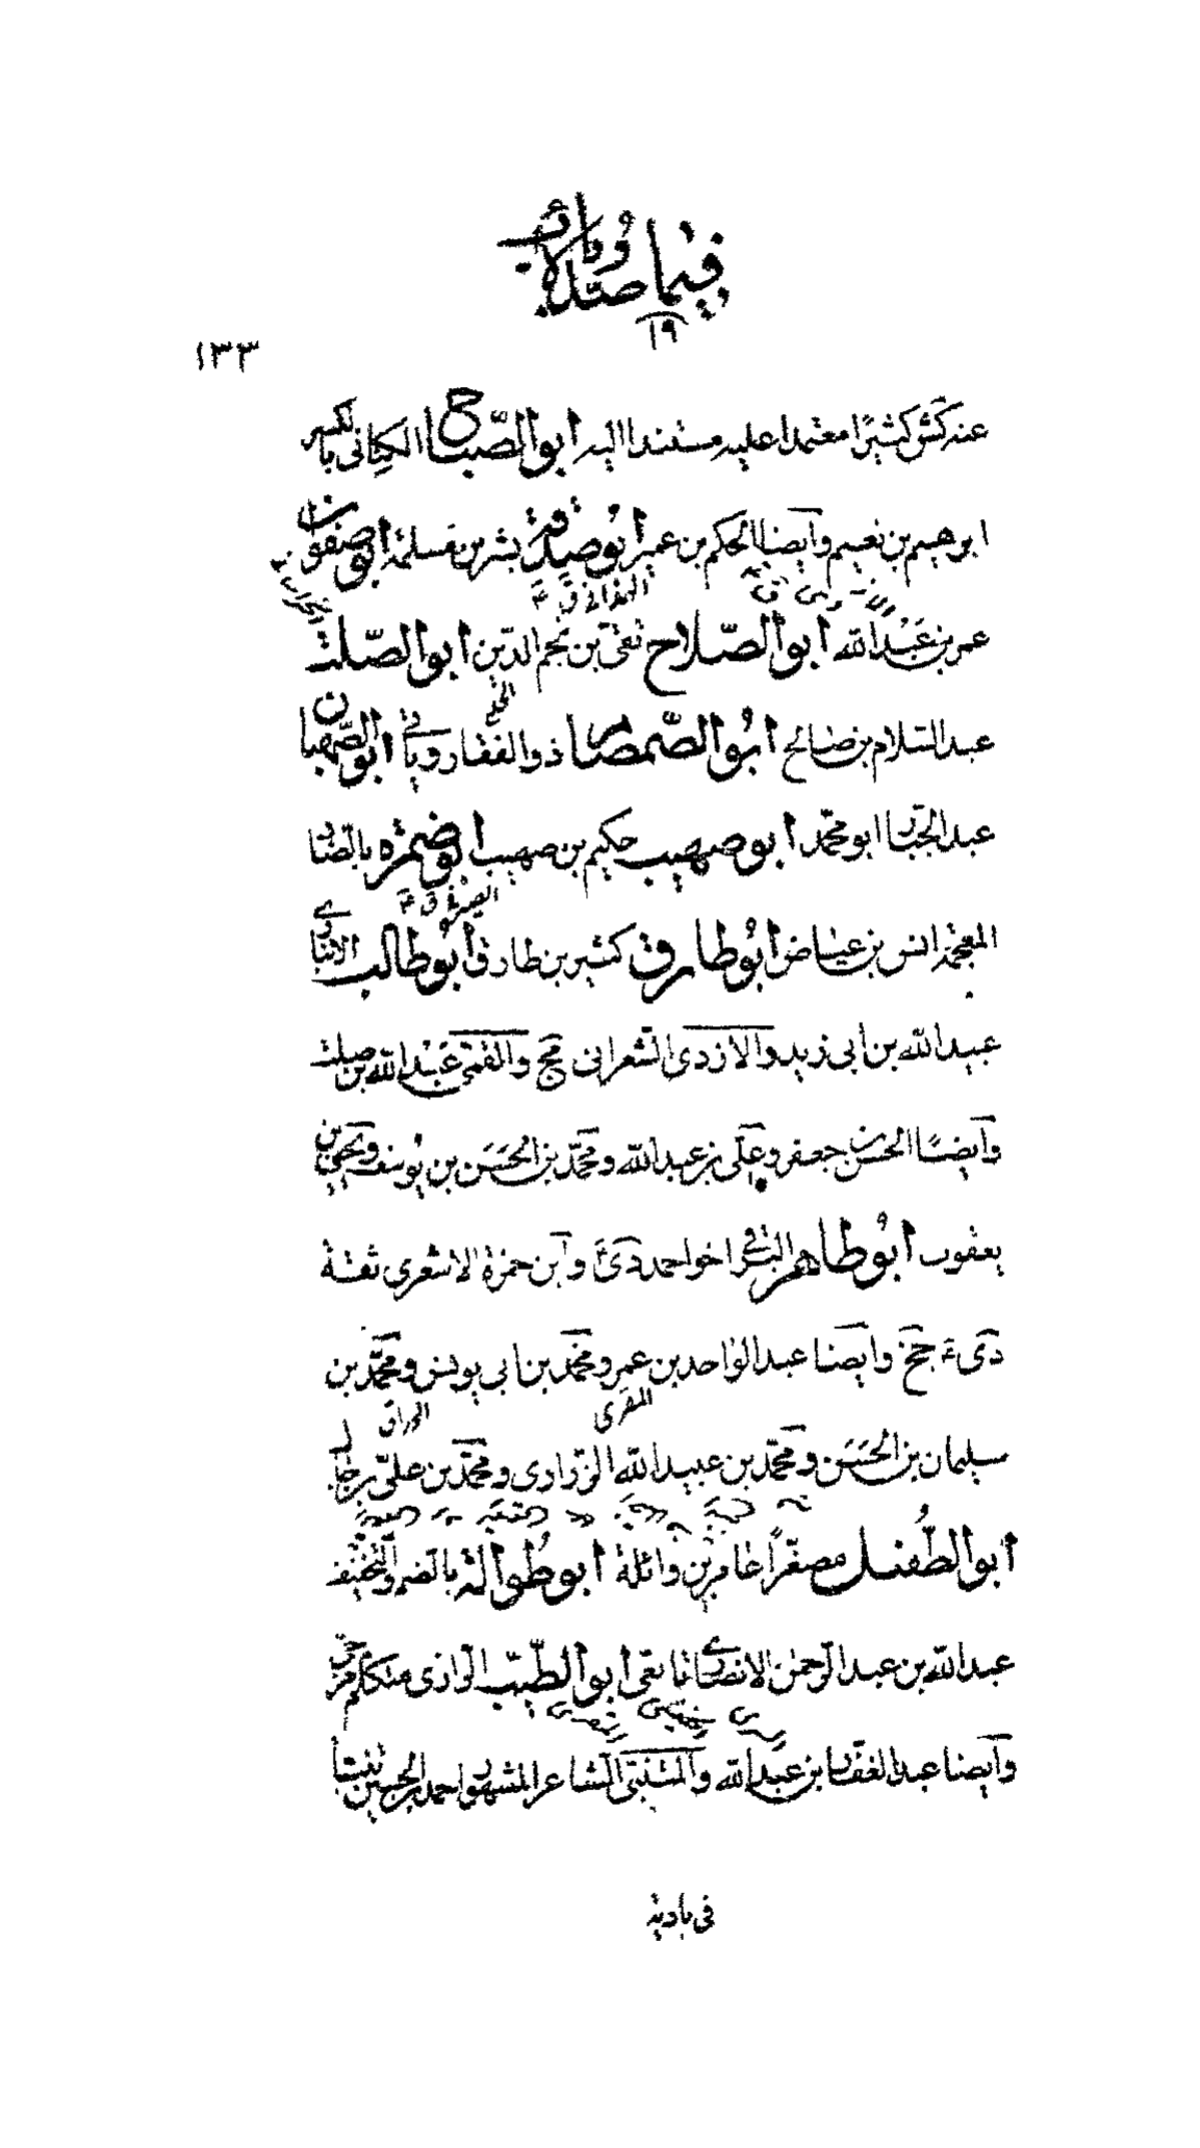 فيما صدره أب
١٩
١٣٣
عنه كش كثيرًا معتمدا عليه مستندا اليه ابو الصّباح الكنانى بالكسر
ابرهيم بن نعيم وايضا الحكم بن عمير ابو صدقة بشر بن مسلمة ابو صفوان
الهمدانى ق
عمر بن عبد الله ابو الصّلاح تقى بن نجم الدّين ابو الصّلت
الحلبى
عبد السّلام بن صالح ابو الصّمصام ذو الفقار ابو الصّهبان
عبد الجبّار ابو محمّد ابو صهيب حكيم بن صهيب ابو ضمره بالضاد
الصيرفى ق
المعجمة انس بن عياض ابو طارق كثير بن طارق ابو طالب الانبارى
عبيد الله بن ابى زيد والازدى الشعرانى مح والقمّى عبد الله بن صلت
وايضًا الحسن بن جعفر وعلى بن عبد الله ومحمّد بن الحسن بن يوسف ويحيى بن
يعقوب ابو طاهر البرقى اخو احمد دى وابن حمزة الاشعرى ثقة
دى جخ وايضا عبد الواحد بن عمر ومحمّد بن ابى يونس ومحمّد بن
المقرى الوراق
سليمان بن الحسن ومحمّد بن عبيد الله الزرارى ومحمّد بن علىّ
ابو الطّفيل مصغّرا عامر بن واثلة ابو طوالة بالضم والتخفيف
عبد الله بن عبد الرّحمٰن الانصارى ابو الطّيّب الرّازى متكلم
وايضا عبد الغفّار بن عبد الله والمتنبّى الشاعر المشهور احمد بن الحسين
فى بادية